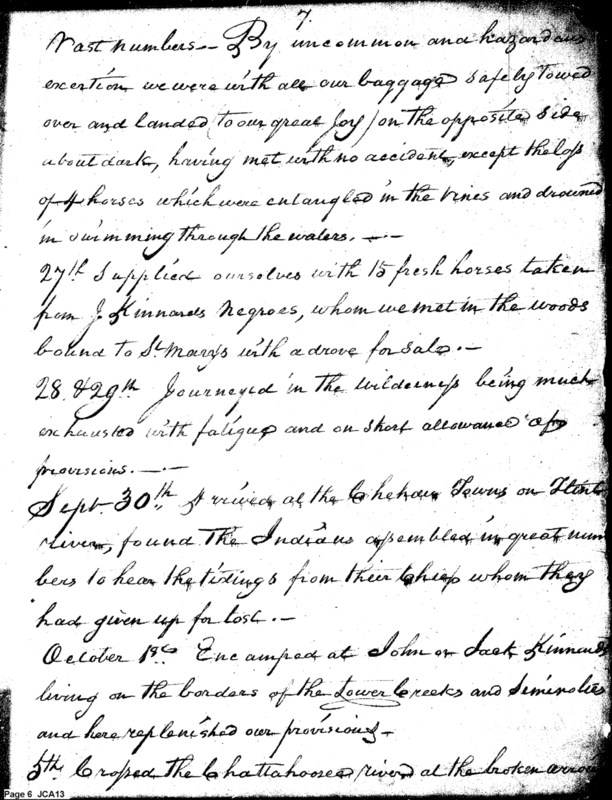 7.
Vast numbers.— By uncommon and hazardous
exertion we were with all our baggage safely towed
over and landed (to our great Joy) on the opposite side
about dark, having met with no accident, except the loss
of 4 horses which were entangled in the vines and drowned
in swimming through the waters. —.—
27th Supplied ourselves with 15 fresh horses taken
from J. Kinnards Negroes, whom we met in the woods
bound to St. Marys with a drove for sale.—
28 & 29th Journeyed in the wilderness being much
exhausted with fatigue and on short allowance of
provisions. —.—
Sept. 30th Arrived at the Chehaw Towns on Flint
river, found the Indians assembled in great num
bers to hear the tidings from their Chief whom they
had given up for lost.—
October 1st. Encamped at John or Jack Kinnards
living on the borders of the Lower Creeks and Seminolies
and here replenished our provisions—
5th Crossed the Chattahoosee river at the broken arrow
Page 6 JCA13